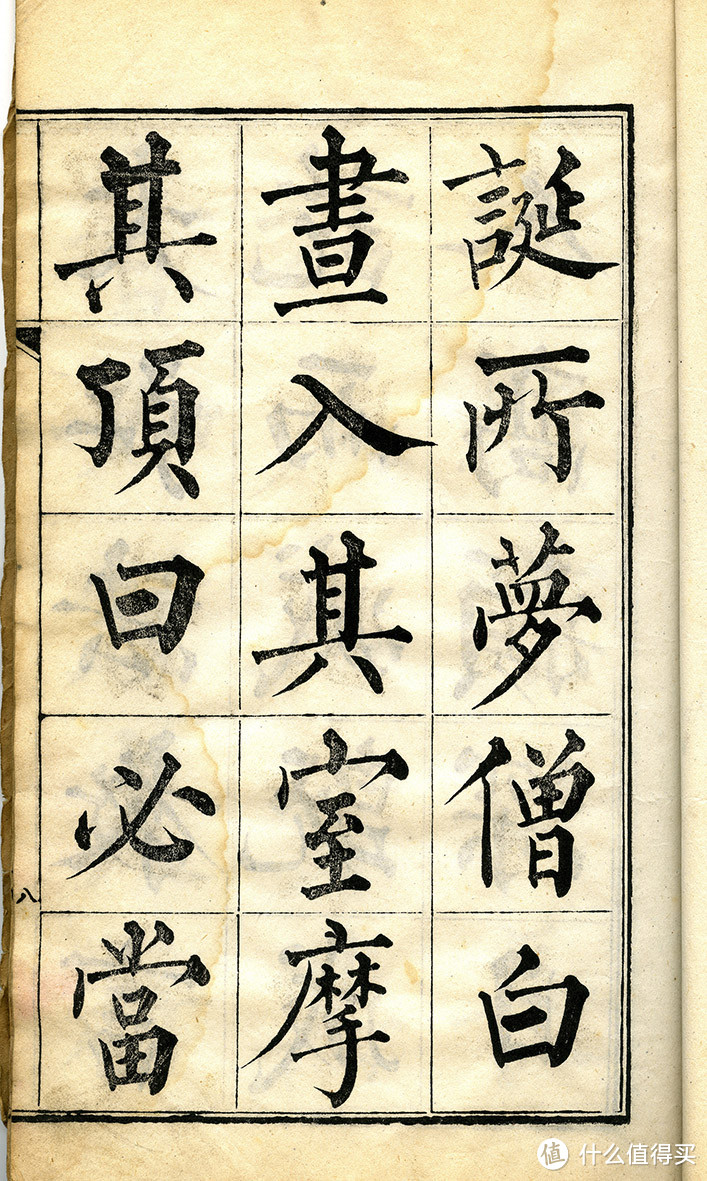 誕所夢僧白
晝入其室摩
其頂曰必當
八
值 什么值得买